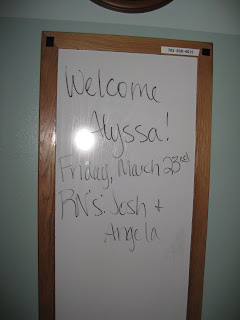 Welcome
Alyssa!
Friday, March 23rd
RN's: Josh +
Angela